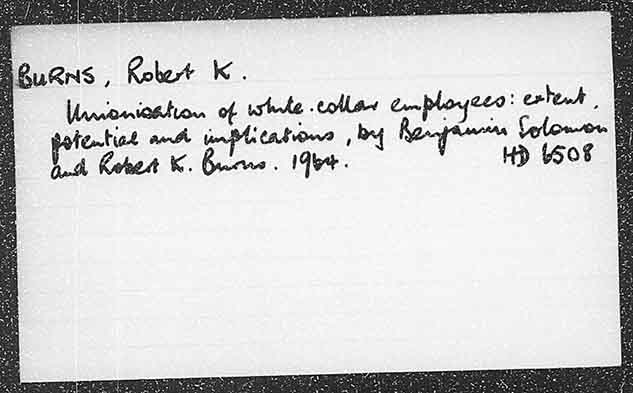 BURNS, Robert K.
Unionisation of white-collar employees: extent,
potential and implications, by Benjamin Solomon
and Robert K. Burns. 1964. HD 6508